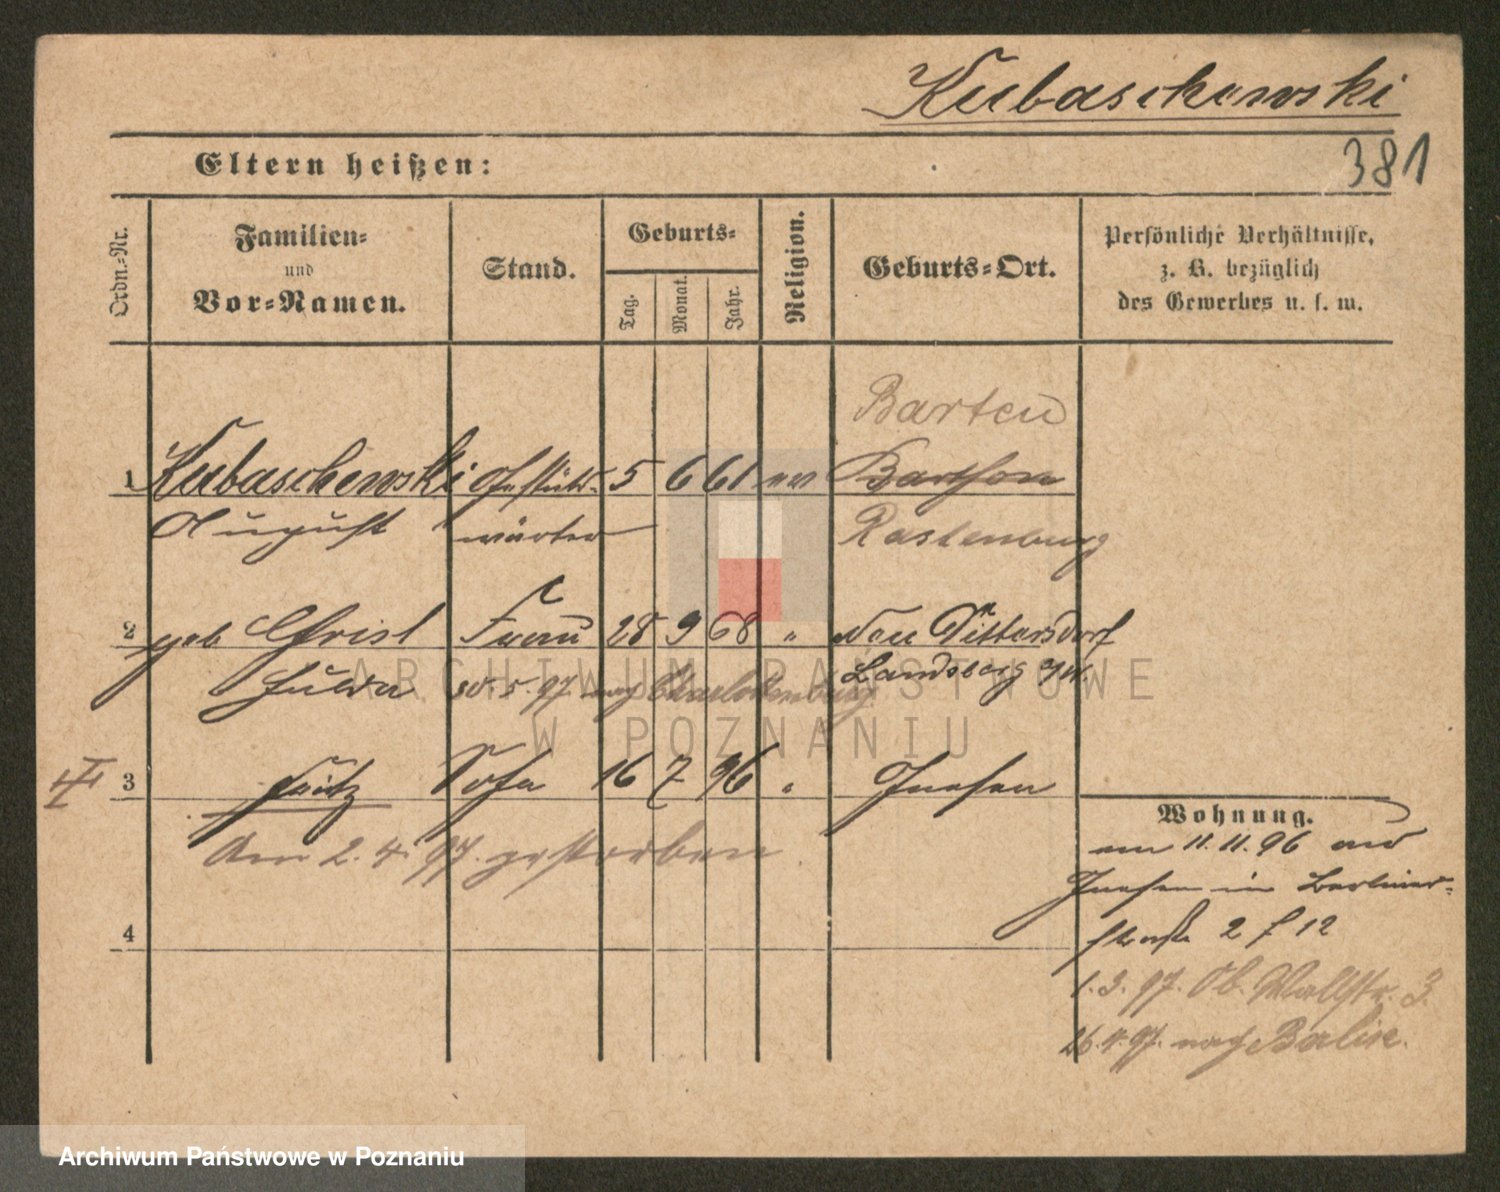 Kubaschewski
381
Eltern heißen:
Ordn.-Nr.
Familien-
und
Vor-Namen.
Stand.
Geburts-
Tag.
Monat.
Jahr.
Religion.
Geburts-Ort.
Persönliche Verhältnisse,
z. B. bezüglich
des Gewerbes u. s. w.
Barten
1 Kubaschewski Gestüt- 5 6 61 ev Barthen
August wärter Rastenburg
2 geb Christ Frau 28 9 68 " Neu Dittersdorf
Hulda 30.5.97 nach Charlottenburg Landsberg a/W.
3 Fritz Sohn 16 7 96 " Gnesen
Am 2.4.97. gestorben
4
Wohnung.
am 11.11.96 aus
Gnesen in Berliner-
straße 2 12
1.3.97. Ob. Wallstr. 3.
26.4.97. nach Berlin.
ARCHIWUM PAŃSTWOWE
W POZNANIU
Archiwum Państwowe w Poznaniu